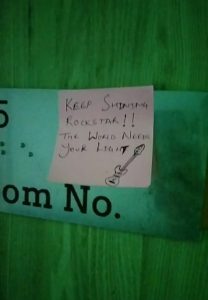 KEEP SHINING
ROCKSTAR!!
THE WORLD NEEDS
YOUR LIGHT
5
om No.